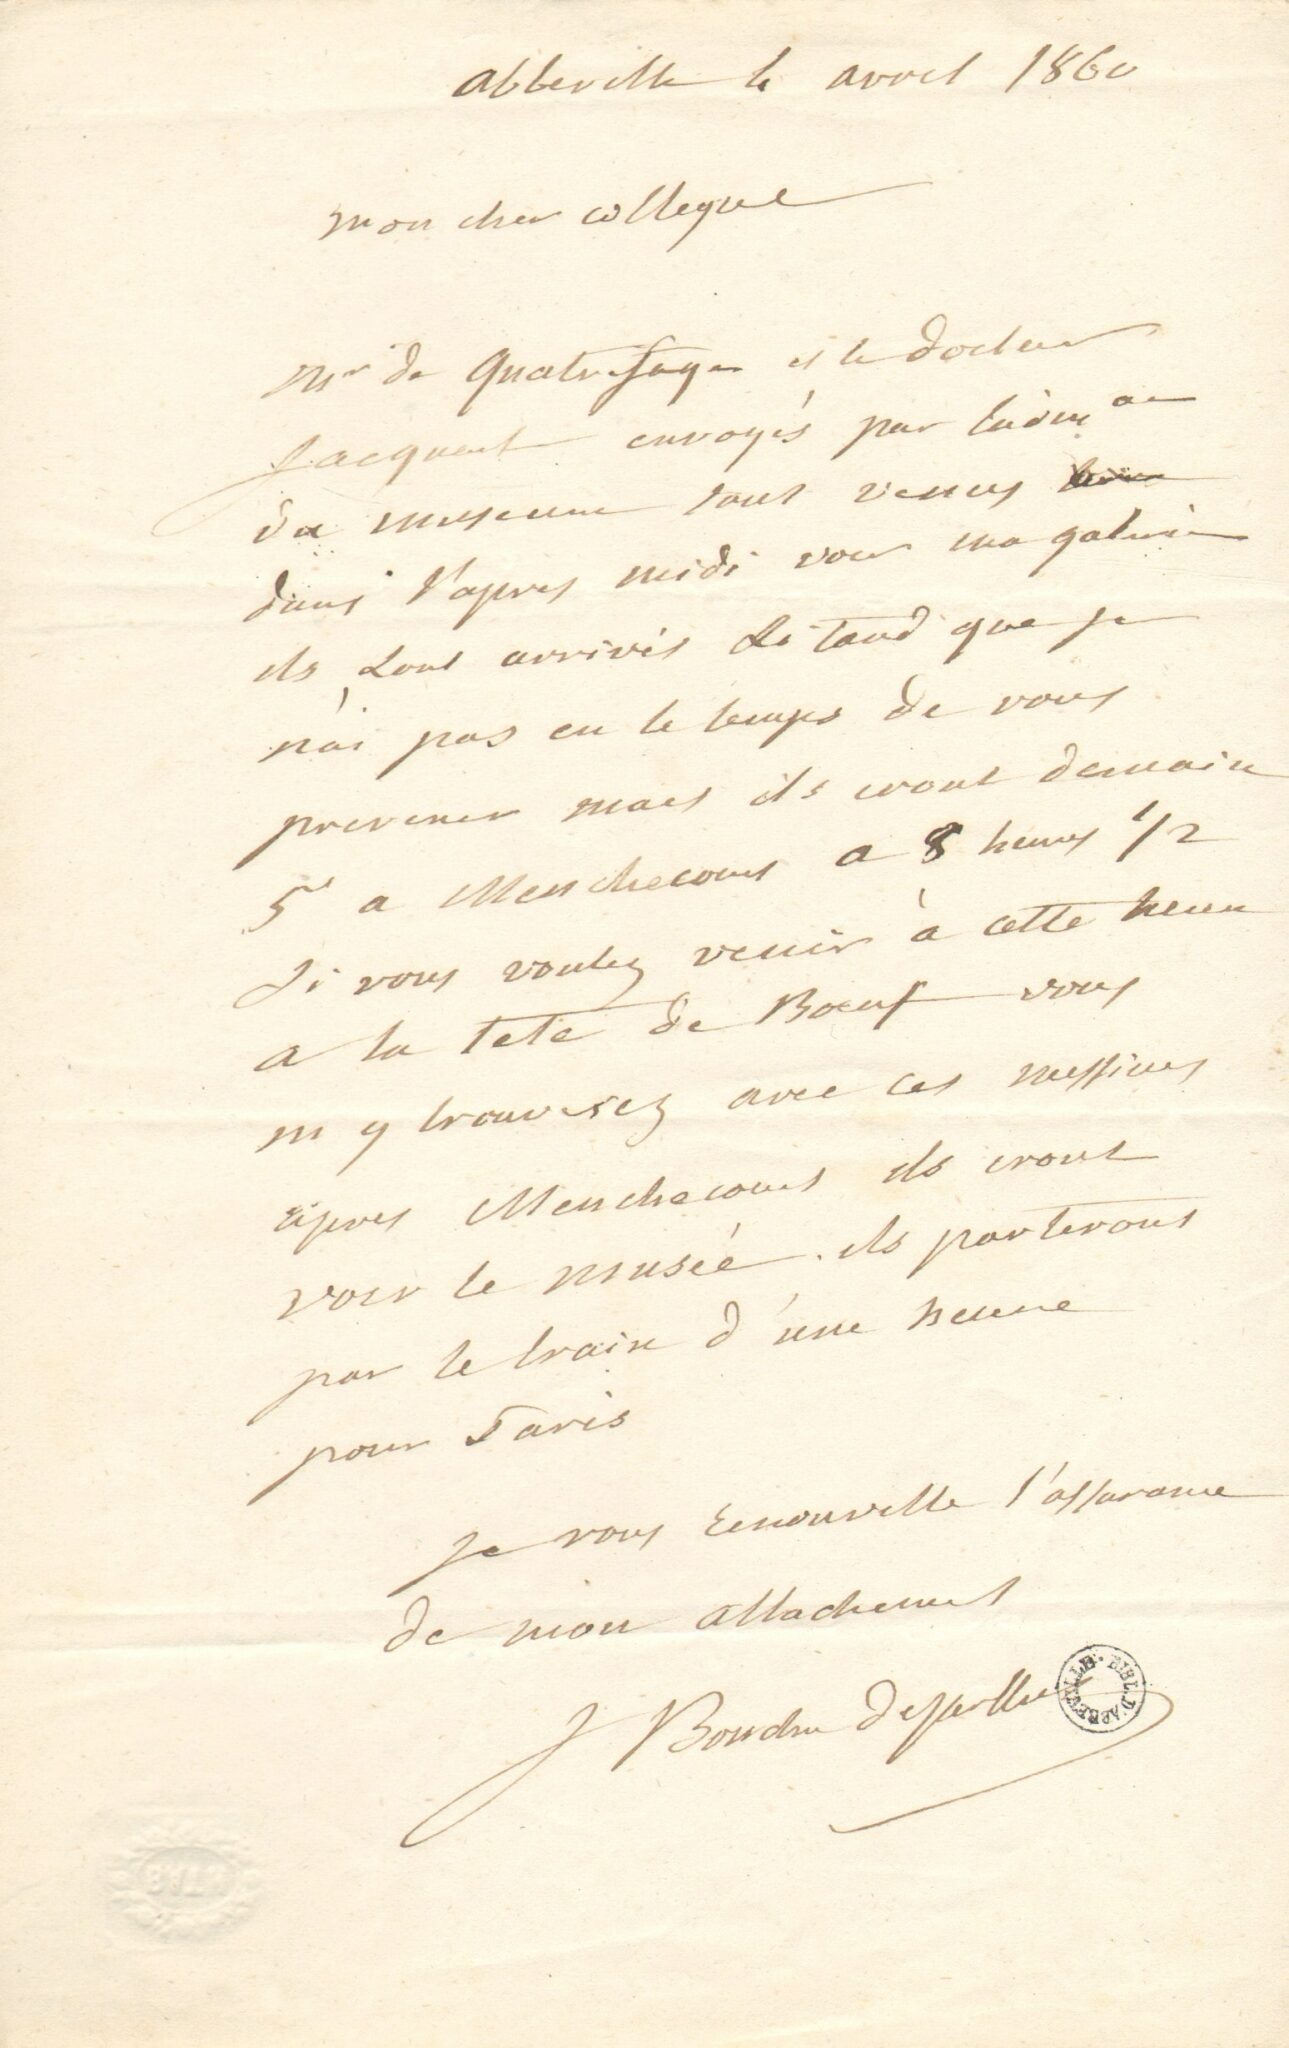 Abbeville 4 avril 1860
Mon cher collegue
Mr de Quatrefages et le docteur
Jacquart envoyés par l'adm on
du museum sont venus
dans l'apres midi voir ma galerie
ils sont arrivés si tard que je
n'ai pas eu le temps de vous
prevenir mais ils iront demain
5 a Menchecourt a 8 heures 1/2
Si vous voulez venir à cette heure
a la tete de Boeuf vous
m y trouverez avec ces messieurs
apres Menchecourt ils iront
voir le musée. ils partirons
par le train d'une heure
pour Paris
je vous renouvelle l'assurance
de mon attachement
J Boucher de Perthes
BIBL. D'ABBEVILLE.
BATH